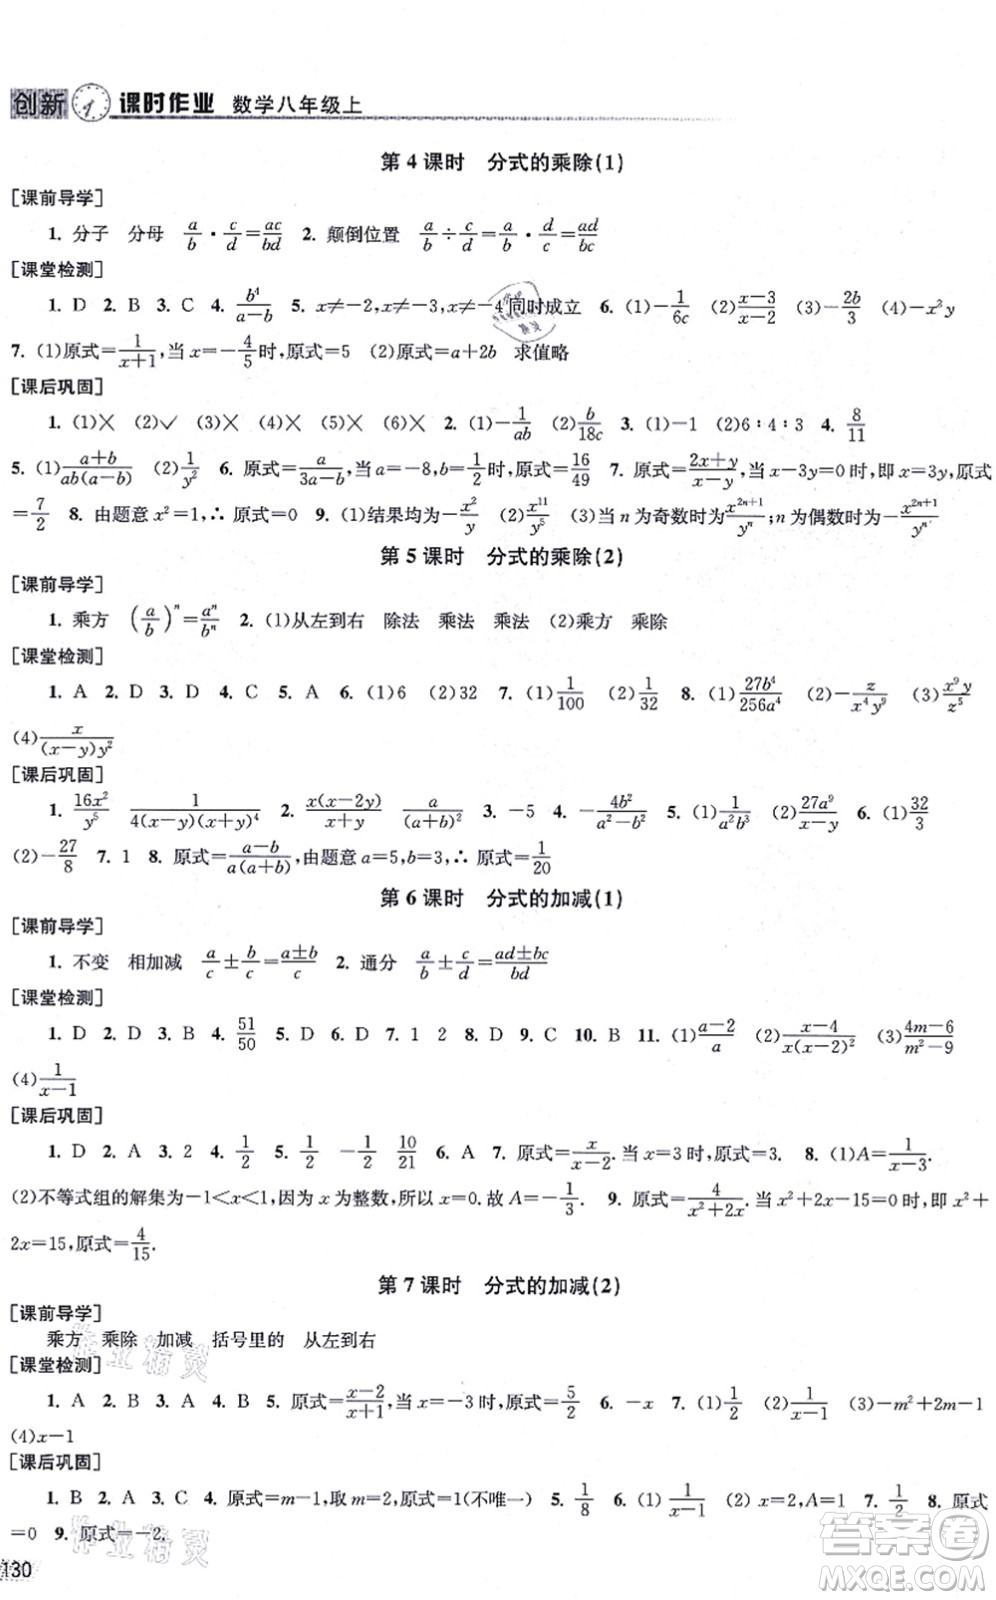 创新 课时作业 数学八年级上
第 4 课时 分式的乘除(1)
[课前导学]
1. 分子 分母 a/b·c/d=ac/bd 2. 颠倒位置 a/b÷c/d=a/b·d/c=ad/bc
[课堂检测]
1. D 2. B 3. C 4. b⁴/(a-b) 5. x≠-2,x≠-3,x≠-4同时成立 6. (1)-1/6c (2)(x-3)/(x-2) (3)-2b/3 (4)-x³y
7. (1)原式=1/(x+1),当x=-4/5时,原式=5 (2)原式=a+2b 求值略
[课后巩固]
1. (1)× (2)√ (3)× (4)× (5)× (6)× 2. (1)-1/ab (2)b/18c 3. (1)-1 (2)6∶4∶3 4. 8/11
5. (1)(a+b)/ab(a-b) (2)1/y² 6. 原式=a/(3a-b),当a=-8,b=1/2时,原式=16/49 7. 原式=(2x+y)/(x-y),当x-3y=0时,即x=3y,原式
=7/2 8. 由题意x²=1,∴原式=0 9. (1)结果均为-x²/y (2)x¹¹/y⁵ (3)当n为奇数时为x²ⁿ⁺¹/yⁿ;n为偶数时为-x²ⁿ⁺¹/yⁿ.
第 5 课时 分式的乘除(2)
[课前导学]
1. 乘方 (a/b)ⁿ=aⁿ/bⁿ 2. (1)从左到右 除法 乘法 乘法 (2)乘方 乘除
[课堂检测]
1. A 2. D 3. D 4. C 5. A 6. (1)6 (2)32 7. (1)1/100 (2)1/32 8. (1)27b⁴/256a⁴ (2)-z/x⁴y⁹ (3)x⁹y/z⁵
(4)x/(x-y)y²
[课后巩固]
1. 16x²/y⁵ 1/4(x-y)(x+y)⁴ 2. x(x-2y)/(x+y) a/(a+b)² 3. -5 4. -4b²/(a²-b²) 5. (1)1/a²b³ (2)27a⁹/(x-y) 6. (1)32/3
(2)-27/8 7. 1 8. 原式=(a-b)/a(a+b),由题意a=5,b=3,∴原式=1/20
第 6 课时 分式的加减(1)
[课前导学]
1. 不变 相加减 a/c±b/c=(a±b)/c 2. 通分 a/b±c/d=(ad±bc)/bd
[课堂检测]
1. D 2. D 3. B 4. 51/50 5. D 6. D 7. 1 2 8. D 9. C 10. B 11. (1)(a-2)/a (2)(x-4)/x(x-2)² (3)(4m-6)/(m²-9)
(4)1/(x-1)
[课后巩固]
1. D 2. A 3. 2 4. 1/2 5. 1/2 -1/2 10/21 6. A 7. 原式=x/(x-2).当x=3时,原式=3. 8. (1)A=1/(x-3).
(2)不等式组的解集为-1<x<1,因为x为整数,所以x=0.故A=-1/3. 9. 原式=4/(x²+2x).当x²+2x-15=0时,即x²+
2x=15,原式=4/15.
第 7 课时 分式的加减(2)
[课前导学]
乘方 乘除 加减 括号里的 从左到右
[课堂检测]
1. A 2. B 3. A 4. B 5. 原式=(x-2)/(x+1),当x=-3时,原式=5/2 6. -x 7. (1)1/2 (2)1/(x-1) (3)-m²+2m-1
(4)x-1
[课后巩固]
1. B 2. A 3. C 4. 原式=m-1,取m=2,原式=1(不唯一) 5. 1/8 6. (1)1/(x-1) (2)x=2,A=1 7. 1/2 8. 原式
=0 9. 原式=-2.
130
作业精灵
作业精灵
答案圈
MXQE.COM